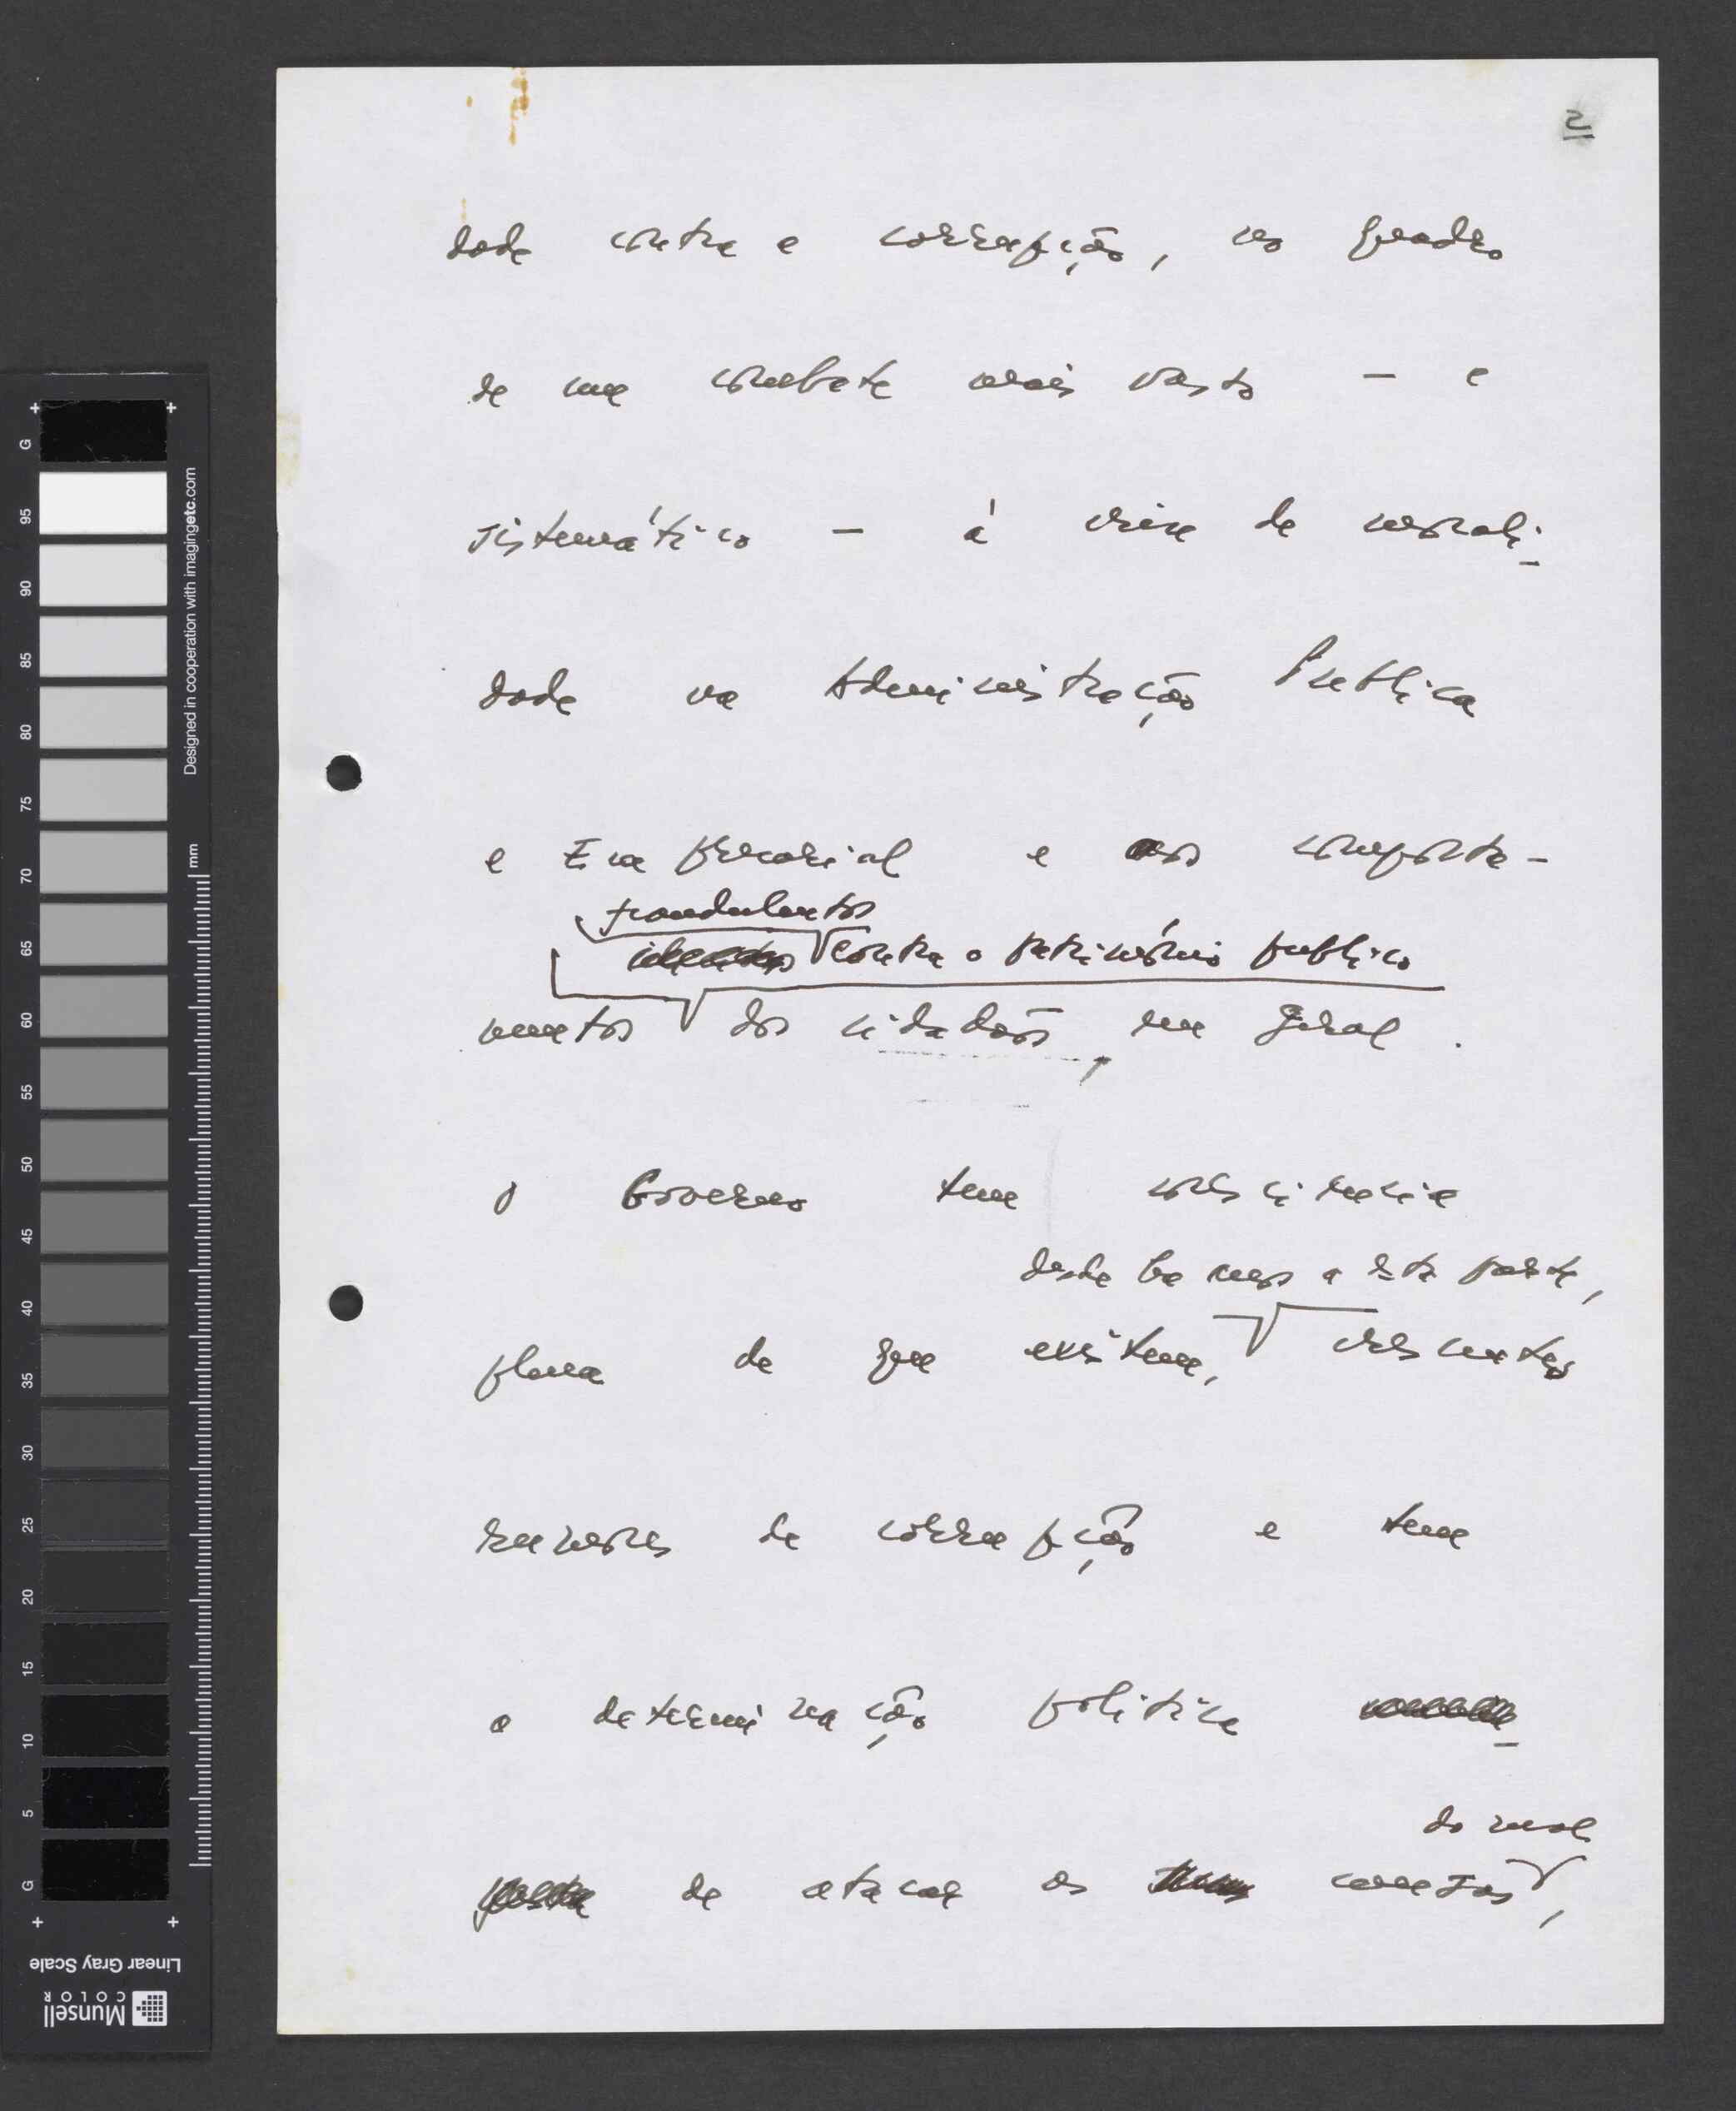 2
dade contra a corrupção, no quadro
de um combate mais vasto - e
sistemático - à crise de morali-
dade na Administração Pública
e Empresarial e nos comporta-
fraudulentos
contra o património publico
mentos dos cidadãos, em geral.
O Governo tem consciência
desde há anos a esta parte,
plena de que existem, crescentes
rumores de corrupção e tem
a determinação politica
do mal
de atacar as causas,
G
95
90
85
80
75
70
65
60
55
50
45
40
35
30
25
20
15
10
5
G
mm
Designed in cooperation with imagingetc.com
Linear Gray Scale
Munsell
COLOR